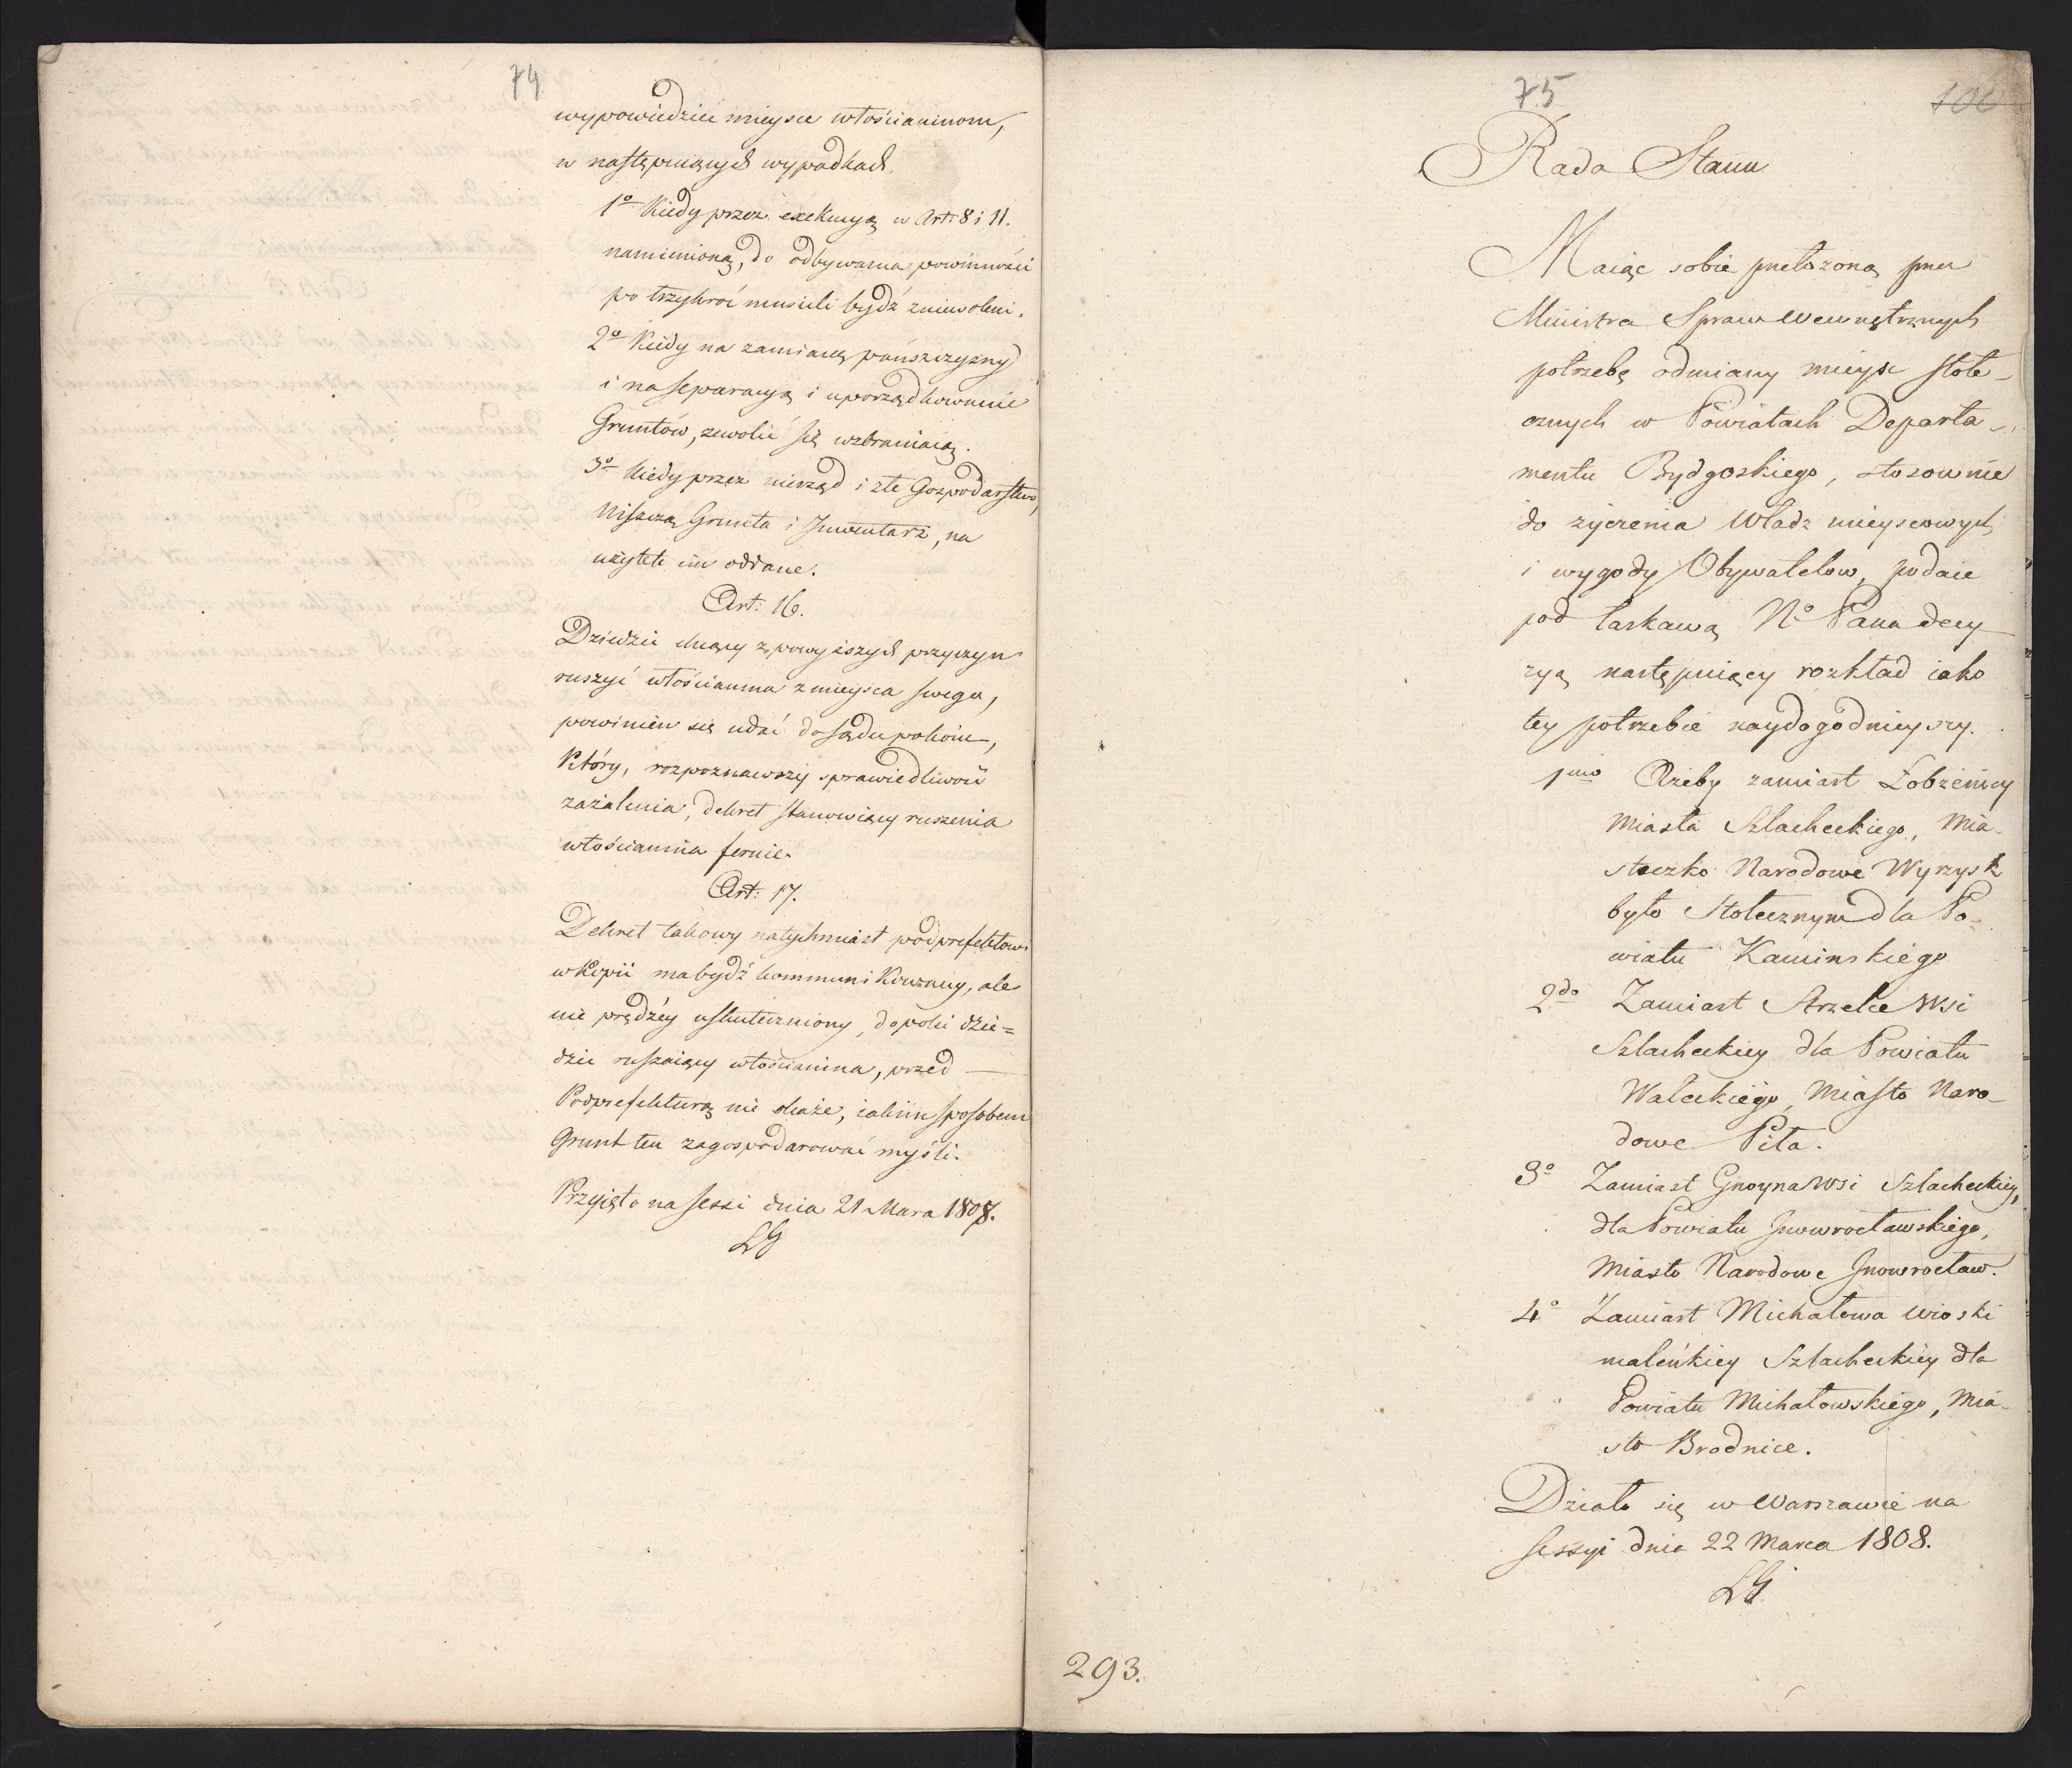 74
wypowiedzieć mieysce włościaninom,
w następuiących wypadkach.
1º Kiedy przez exekucyą w Art: 8 i 11.
namienioną, do odbywania powinności
po trzykroć musieli bydź zniewoleni.
2º Kiedy na zamianę pańszczyzny
i na separacyą i uporządkowanie
Gruntów, zewolić się wzbraniaią.
3º Kiedy przez nierząd i złe Gospodarstwo,
niszczą Grunta i Inwentarz, na
użytek im oddane.
Art: 16.
Dziedzic chcący z powyższych przyczyn
ruszyć włościanina z mieysca swego,
powinien się udać do sądu pokoiu,
Który, rozpoznawszy sprawiedliwość
zażalenia, dekret stanowiący ruszenia
włościanina feruie.
Art: 17.
Dekret takowy natychmiast podprefektowi
w Kopii ma bydź kommunikowany, ale
nie prędzéy uskuteczniony, dopoki dzie=
dzic ruszaiący włościanina, przed
Podprefekturą nie okaże, iakiim sposobem
Grunt ten zagospodarować myśli.
Przyięto na sessi dnia 21 Marca 1808.
LG
75
106
Rada Stanu
Maiąc sobie przełożoną przez
Ministra Spraw Wewnętrznych
potrzebę odmiany mieysc stołe-
cznych w Powiatach Departa-
mentu Bydgoskiego, stosownie
do życzenia Władz mieyscowych
i wygody Obywatelow, podaie
pod łaskawą Nº Pana decy
zyą następuiący rozkład iako
tey potrzebie naydogodnieyszy.
1mo Ażeby zamiast Łobżenicy
Miasta Szlacheckiego, Mia-
steczko Narodowe Wyrzysk
było Stołecznym dla Po-
wiatu Kaminskiego
2do Zamiast Strzelce Wsi
Szlacheckiey dla Powiatu
Wałeckiego, Miasto Naro-
dowe Piła.
3º Zamiast Gnoyna Wsi Szlacheckiey,
dla Powiatu Inowrocławskiego,
Miasto Narodowe Inowrocław.
4º Zamiast Michałowa wioski
maleńkiey Szlacheckiey dla
Powiatu Michałowskiego, Mia-
sto Brodnice.
Działo się w Warszawie na
sessyi dnia 22 Marca 1808.
LG
293.